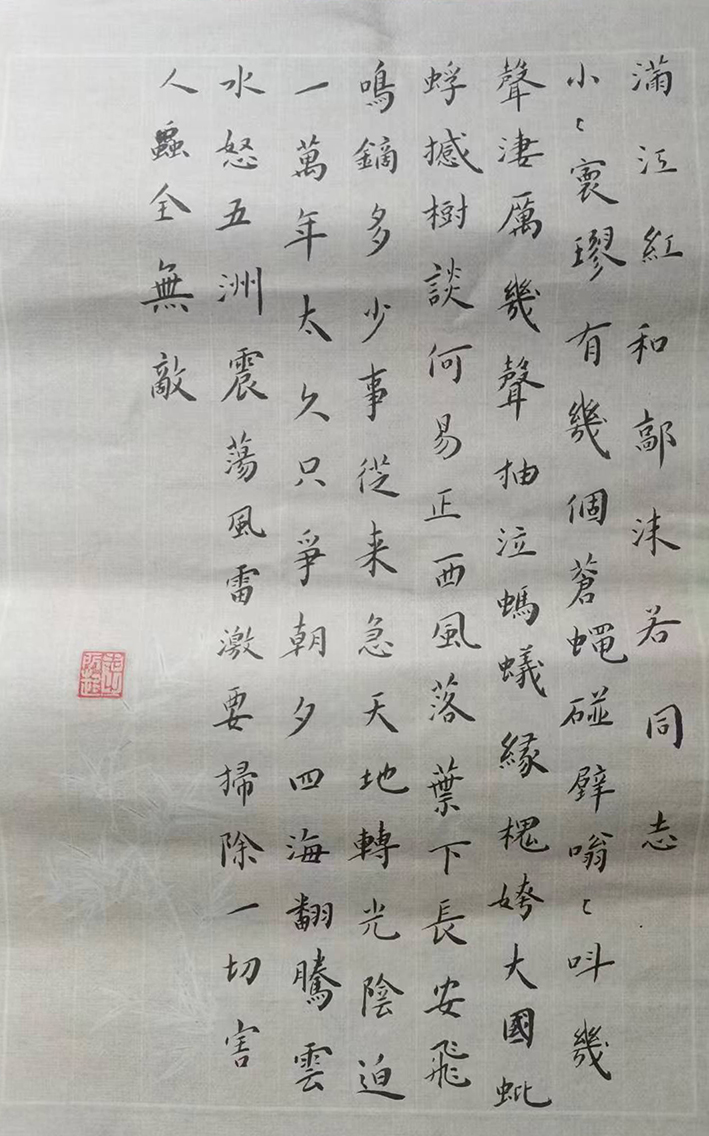 滿江紅和郭沫若同志
小〻寰璆有幾個蒼蠅碰壁嗡〻叫幾
聲淒厲幾聲抽泣螞蟻緣槐姱大國蚍
蜉撼樹談何易正西風落葉下長安飛
鳴鏑多少事從来急天地轉光陰迫
一萬年太久只爭朝夕四海翻騰雲
水怒五洲震蕩風雷激要掃除一切害
人蟲全無敵